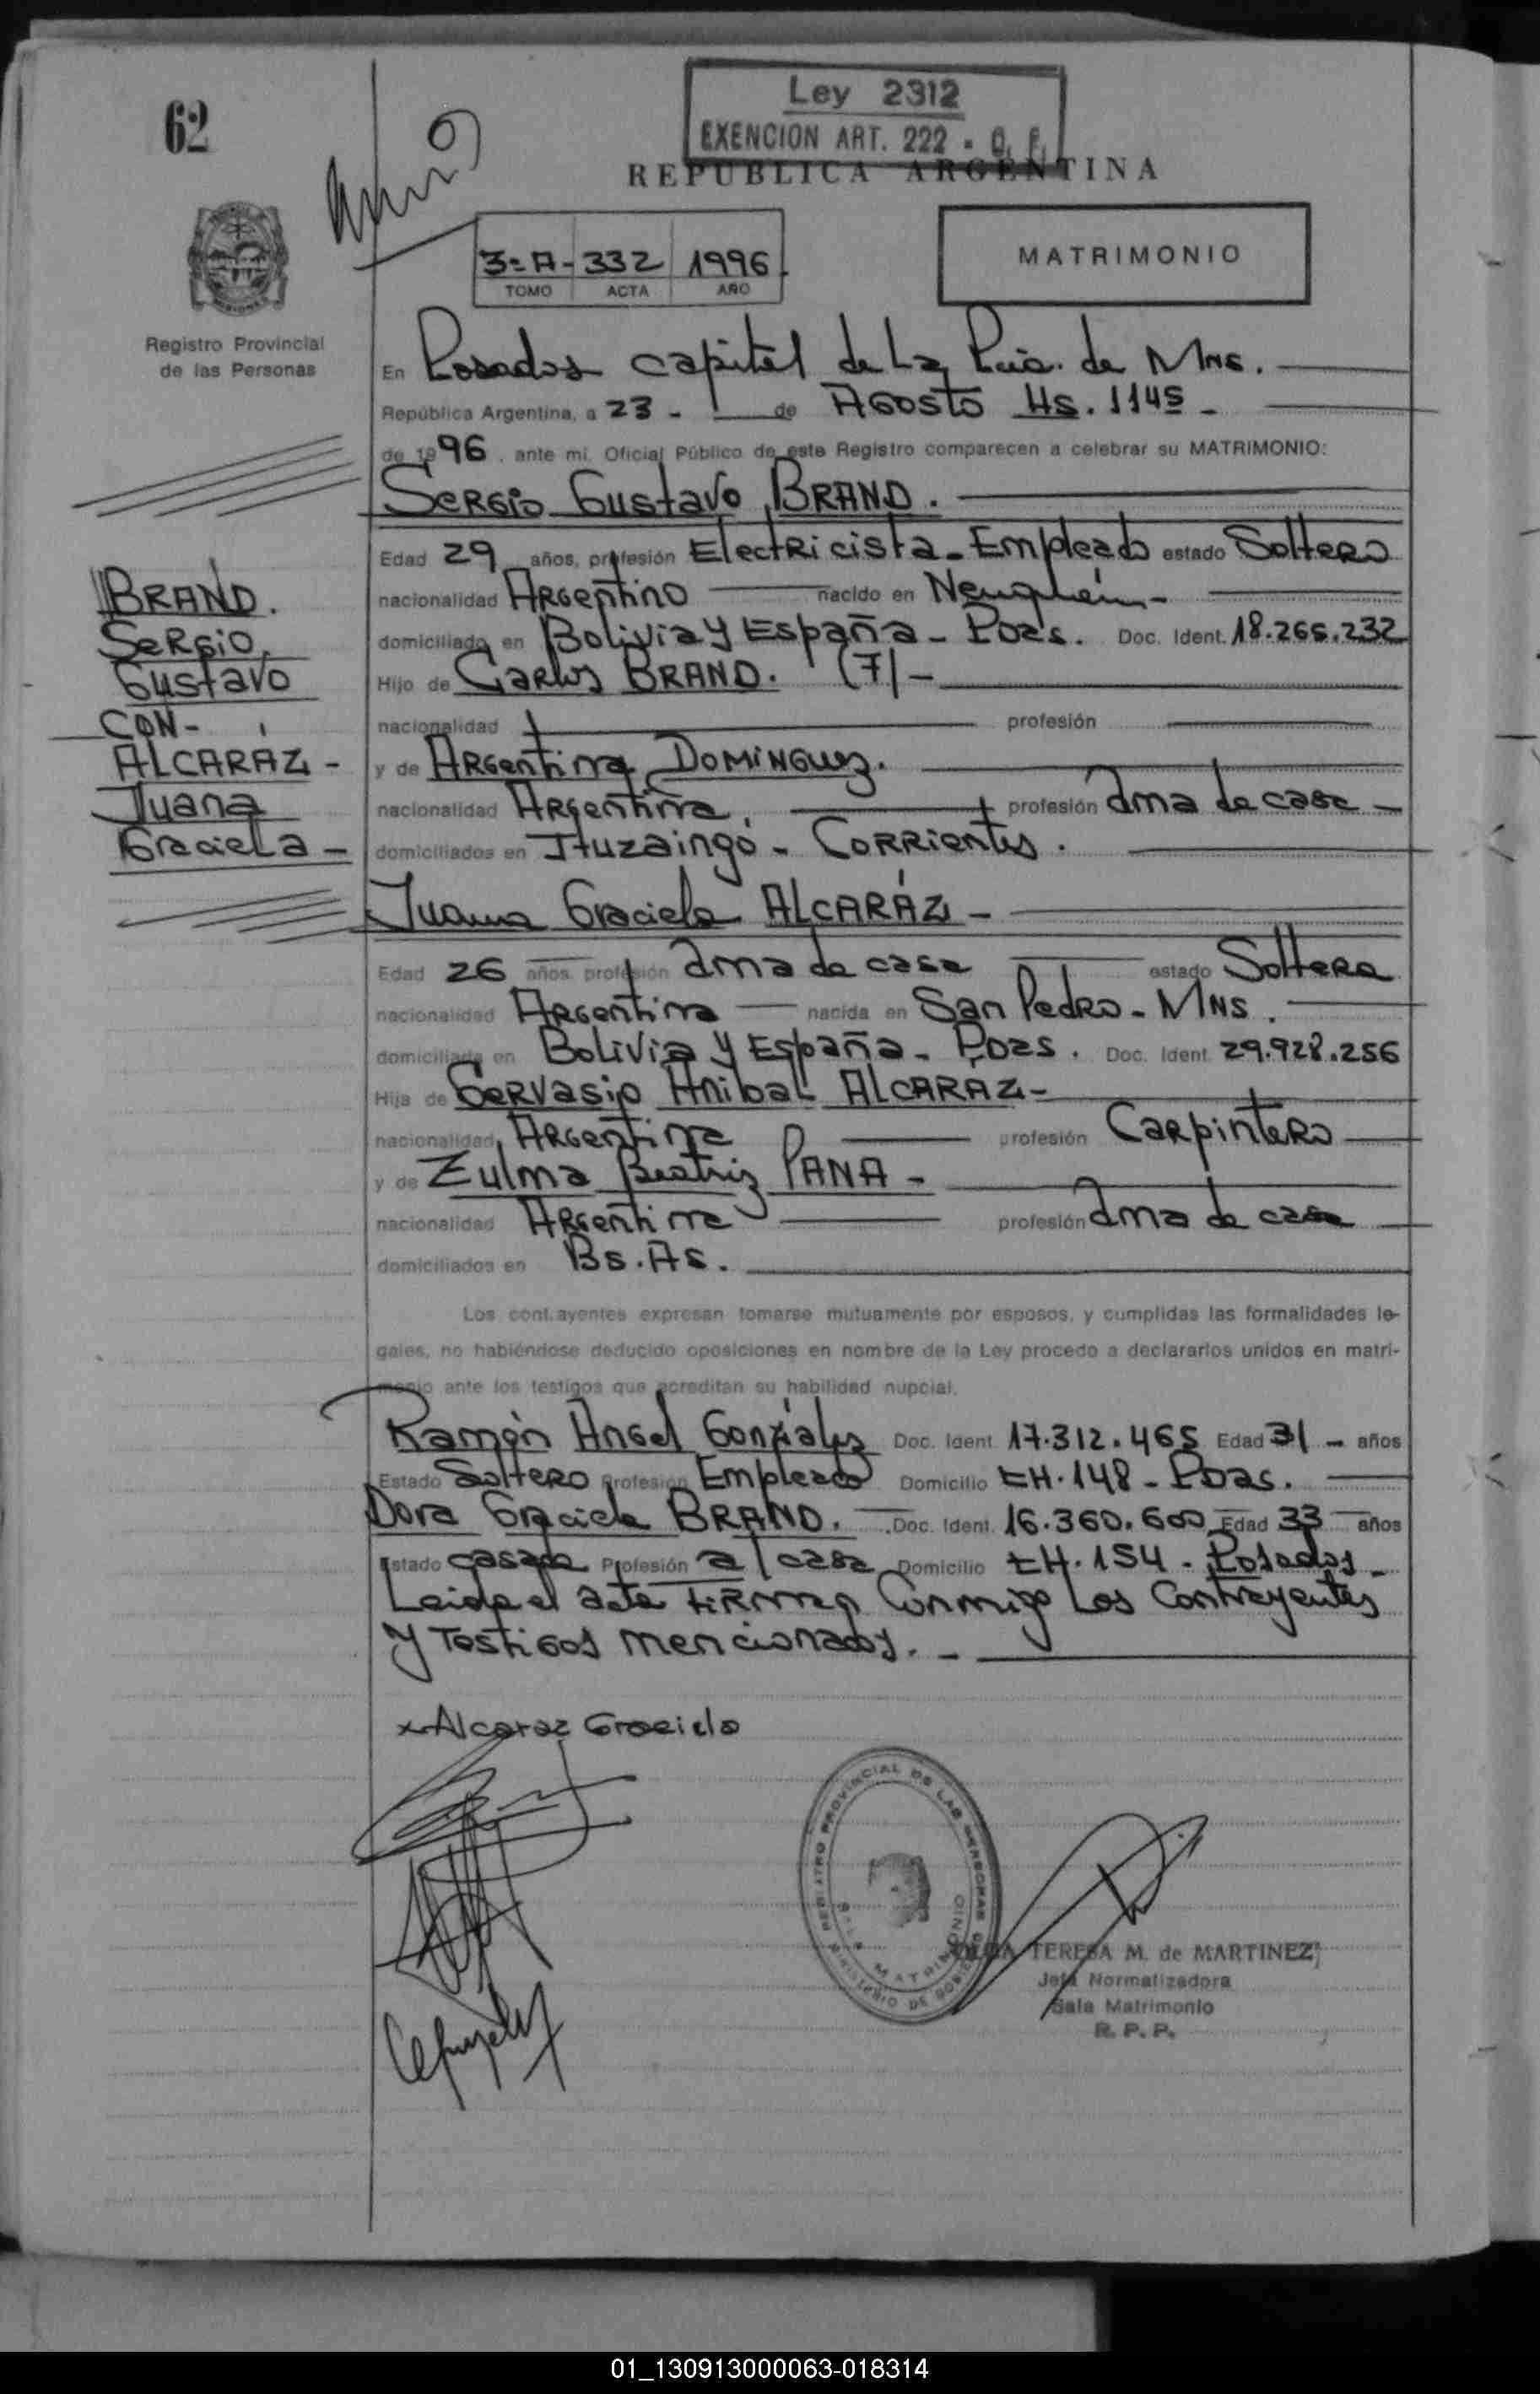 62
Ley 2312
EXENCION ART. 222 - C. F.
REPUBLICA ARGENTINA
3=A- 332 1996
TOMO ACTA AÑO
MATRIMONIO
Registro Provincial
de las Personas
En Posadas capital de La Pcia. de Mns.
República Argentina, a 23 - de Agosto Hs. 1145 -
de 1996, ante mi, Oficial Público de este Registro comparecen a celebrar su MATRIMONIO:
Sergio Gustavo BRAND.
Edad 29 años, profesión Electricista - Empleado estado Soltero
nacionalidad Argentino nacido en Neuquén -
domiciliado en Bolivia y España - Pdas. Doc. Ident. 18.265.232
Hijo de Carlos BRAND. (7) -
nacionalidad profesión
y de Argentina DOMINGUEZ.
nacionalidad Argentina. profesión ama de casa -
domiciliados en Ituzaingó - Corrientes.
BRAND.
Sergio
Gustavo
CON -
ALCARAZ -
Juana
Graciela -
Juana Graciela ALCARÁZ -
Edad 26 años profesión ama de casa estado Soltera
nacionalidad Argentina nacida en San Pedro - Mns.
domiciliada en Bolivia y España - Pdas. Doc. Ident 29.928.256
Hija de Gervasio Anibal ALCARAZ -
nacionalidad Argentina profesión Carpintero
y de Zulma Beatriz PANA -
nacionalidad Argentina profesión ama de casa
domiciliados en Bs. As.
Los contrayentes expresan tomarse mutuamente por esposos, y cumplidas las formalidades le-
gales, no habiéndose deducido oposiciones en nombre de la Ley procedo a declararlos unidos en matri-
monio ante los testigos que acreditan su habilidad nupcial.
Ramón Angel Gonzalez Doc. Ident 17.312.465 Edad 31 - años
Estado Soltero Profesión Empleado Domicilio CH. 148 - Pdas.
Dora Graciela BRAND. Doc. Ident. 16.360.600 Edad 33 años
Estado casada Profesión a/casa Domicilio CH. 154 - Posadas -
Leida el acta firman conmigo Los Contrayentes
y Testigos mencionados. -
x Alcaraz Graciela
REGISTRO PROVINCIAL DE LAS PERSONAS
SALA MATRIMONIO
MINISTERIO DE GOBIERNO
TERESA M. de MARTINEZ
Jefa Normalizadora
Sala Matrimonio
R. P. P.
01_130913000063-018314